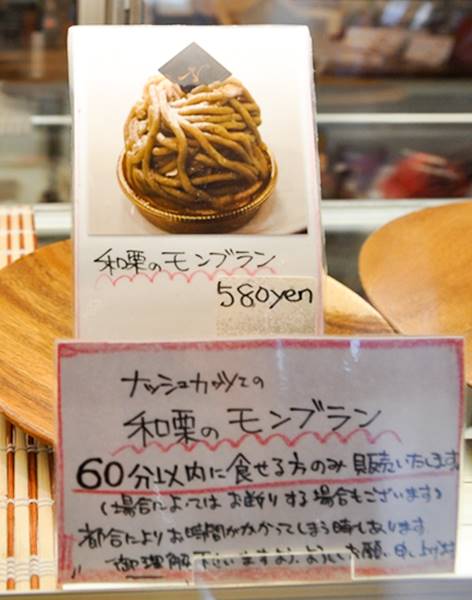 和栗のモンブラン
580yen
ナッシュカッツェの
和栗のモンブラン
60分以内に食せる方のみ販売いたします
(場合によっては お断りする場合もございます)
都合によりお時間がかかってしまう時もあります
御理解下さいますよう、よろしくお願い申し上げます